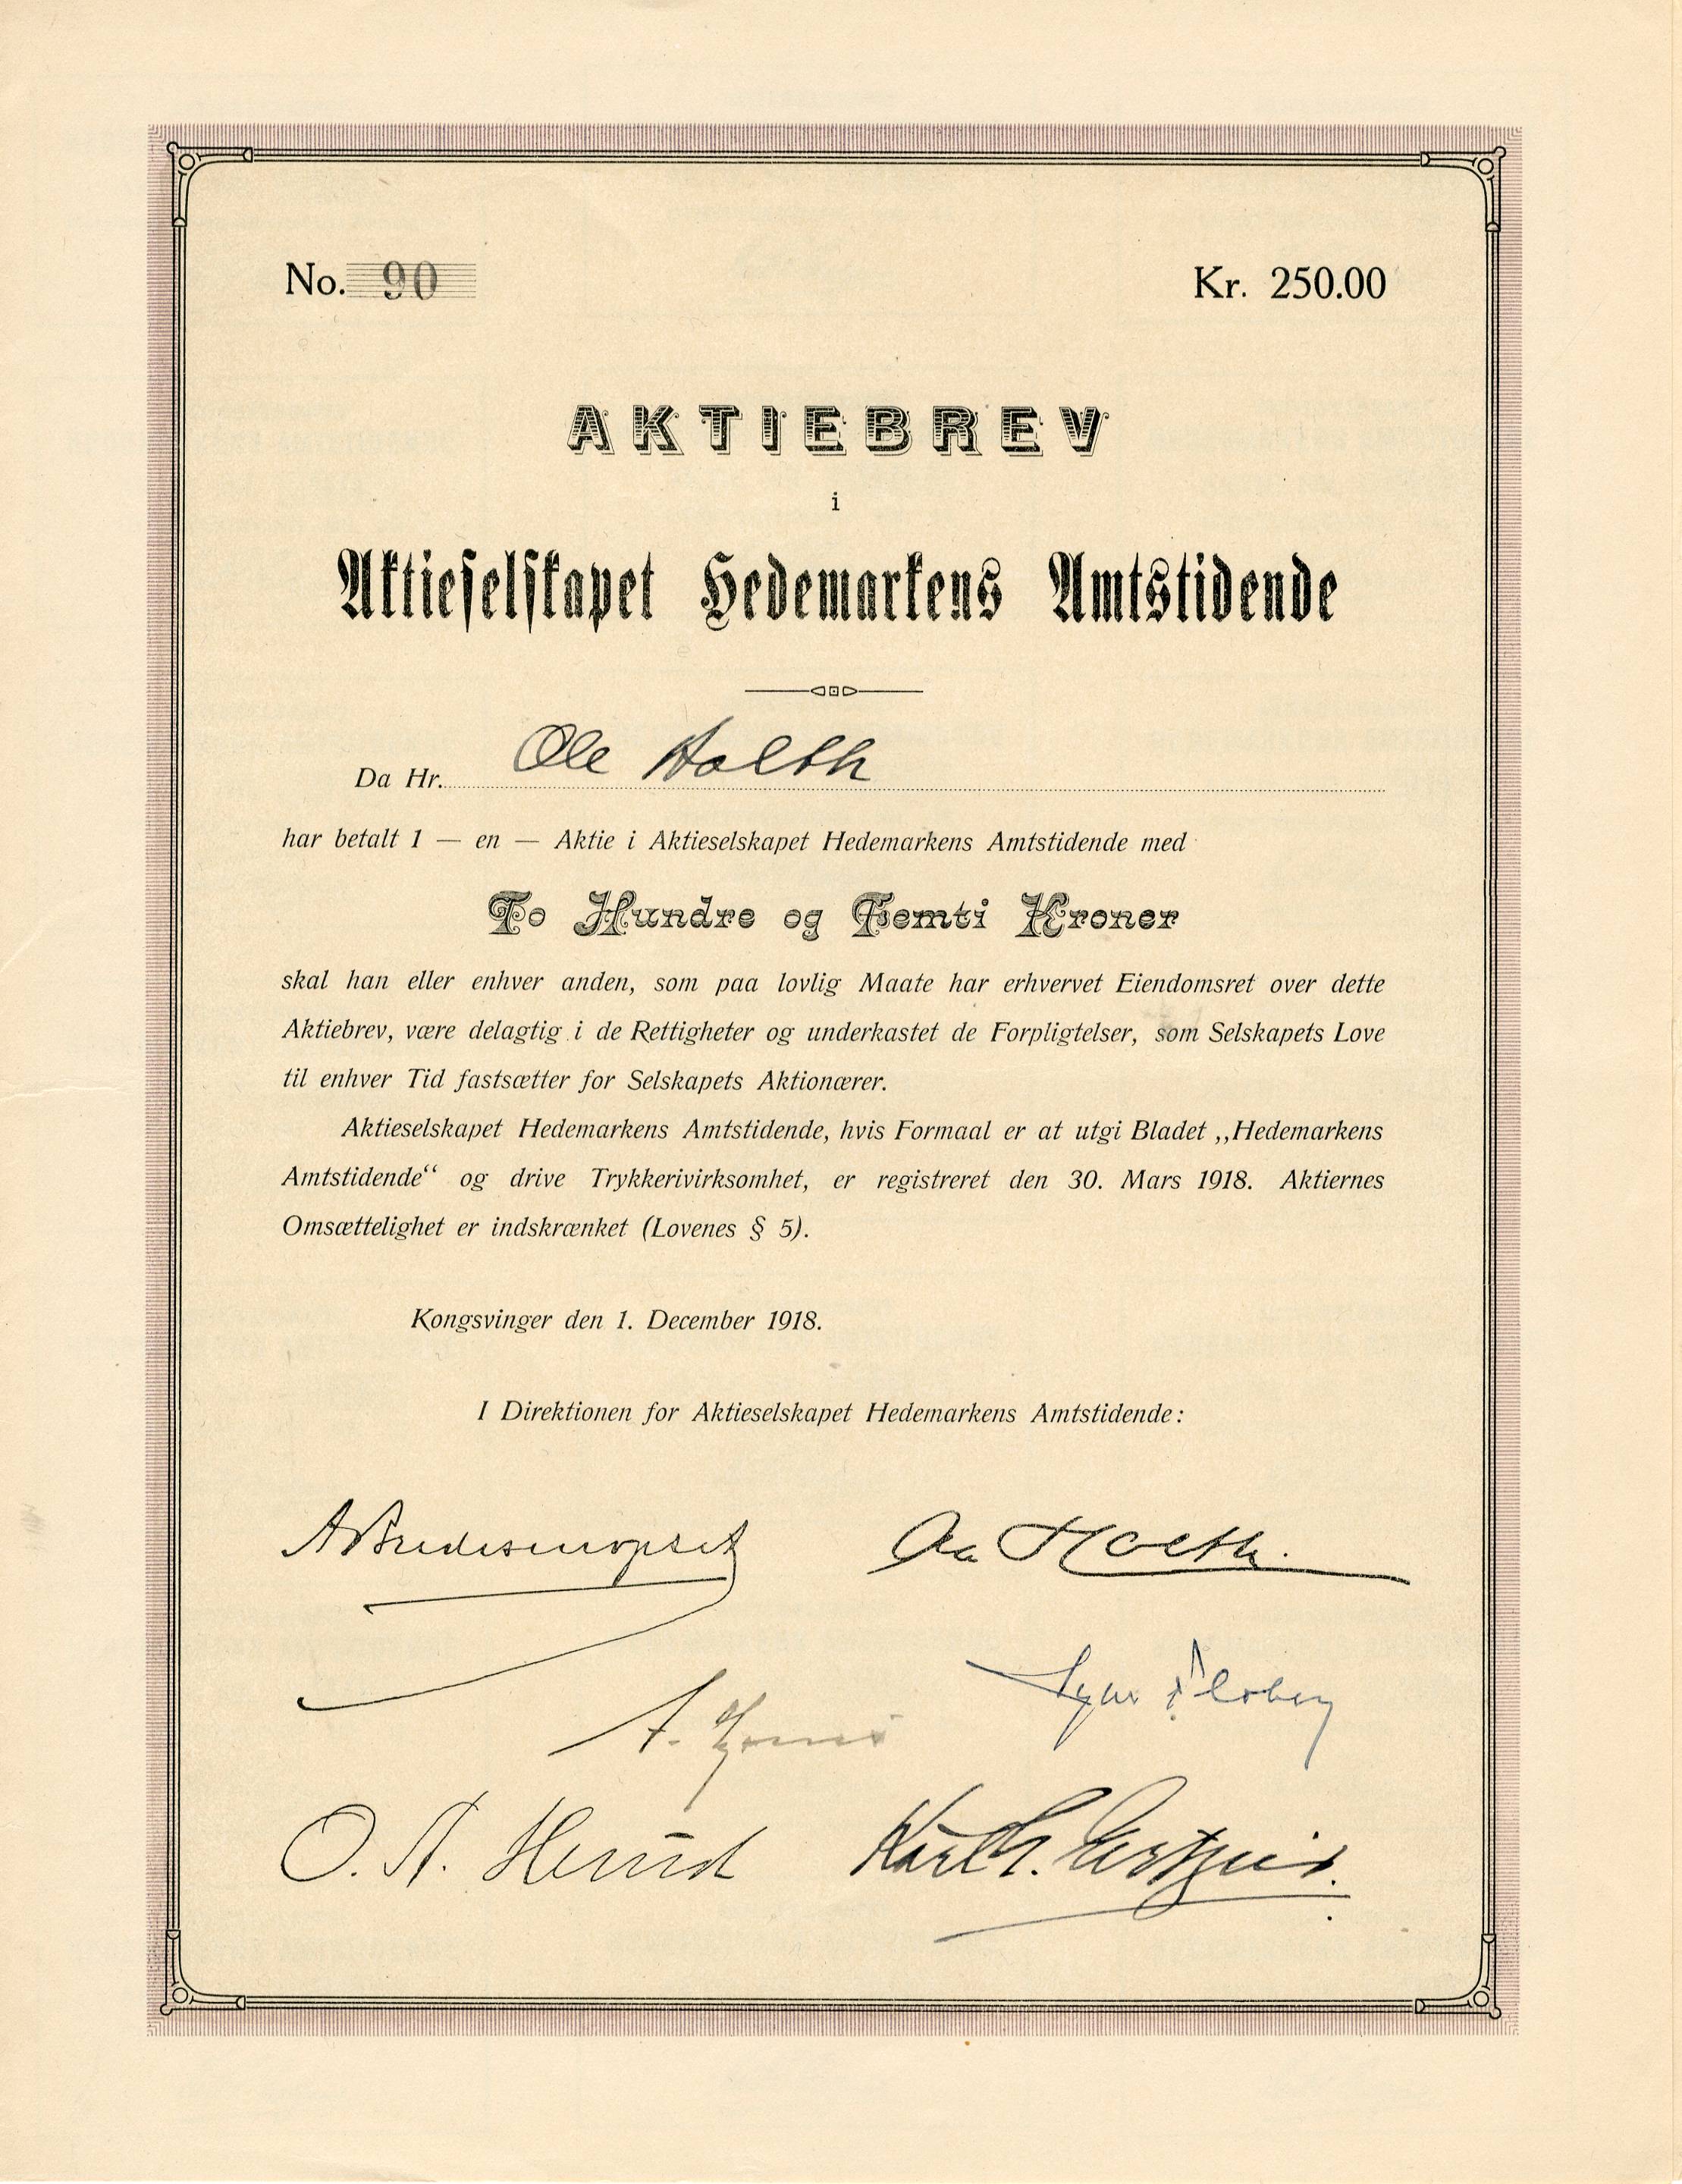 No. 90
Kr. 250.00
AKTIEBREV
i
Aktieselskapet Hedemarkens Amtstidende
Da Hr. Ole Holth
har betalt 1 — en — Aktie i Aktieselskapet Hedemarkens Amtstidende med
To Hundre og Femti Kroner
skal han eller enhver anden, som paa lovlig Maate har erhvervet Eiendomsret over dette
Aktiebrev, være delagtig i de Rettigheter og underkastet de Forpligtelser, som Selskapets Love
til enhver Tid fastsætter for Selskapets Aktionærer.
Aktieselskapet Hedemarkens Amtstidende, hvis Formaal er at utgi Bladet „Hedemarkens
Amtstidende“ og drive Trykkerivirksomhet, er registreret den 30. Mars 1918. Aktiernes
Omsættelighet er indskrænket (Lovenes § 5).
Kongsvinger den 1. December 1918.
I Direktionen for Aktieselskapet Hedemarkens Amtstidende:
Aa Holth.
O. A. Herud